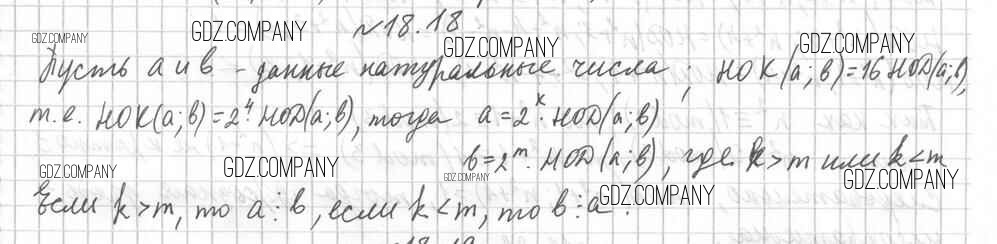 №18.18
GDZ.COMPANY GDZ.COMPANY GDZ.COMPANY GDZ.COMPANY
Пусть a и b - данные натуральные числа; НОК(a;b)=16 НОД(a;b),
т.е. НОК(a;b)=2⁴·НОД(a;b), тогда a=2ᵏ·НОД(a;b)
b=2ᵐ·НОД(a;b), где k>m или k<m
GDZ.COMPANY GDZ.COMPANY GDZ.COMPANY GDZ.COMPANY GDZ.COMPANY
Если k>m, то a⋮b, если k<m, то b⋮a.